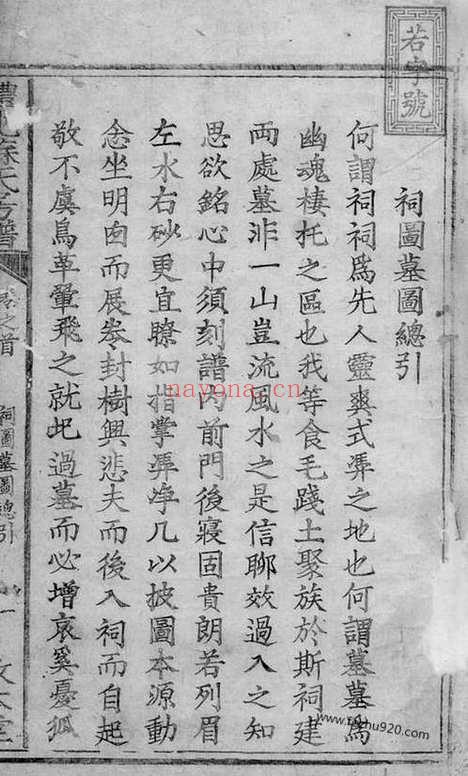 若字號
祠圖墓圖總引
何謂祠祠爲先人靈爽式凴之地也何謂墓墓爲
幽魂棲托之區也我等食毛踐土聚族於斯祠建
兩處墓非一山豈流風水之是信聊效過入之知
思欲銘心中須刻譜內前門後寢固貴朗若列眉
左水右砂更宜瞭如指掌凴淨几以披圖本源動
念坐明囱而展卷封樹興悲夫而後入祠而自起
敬不虞鳥革翬飛之就圮過墓而必增哀奚憂狐
氏 譜
卷之首
祠圖墓圖總引
一
本堂
nayona.cn
www.foshu920.com